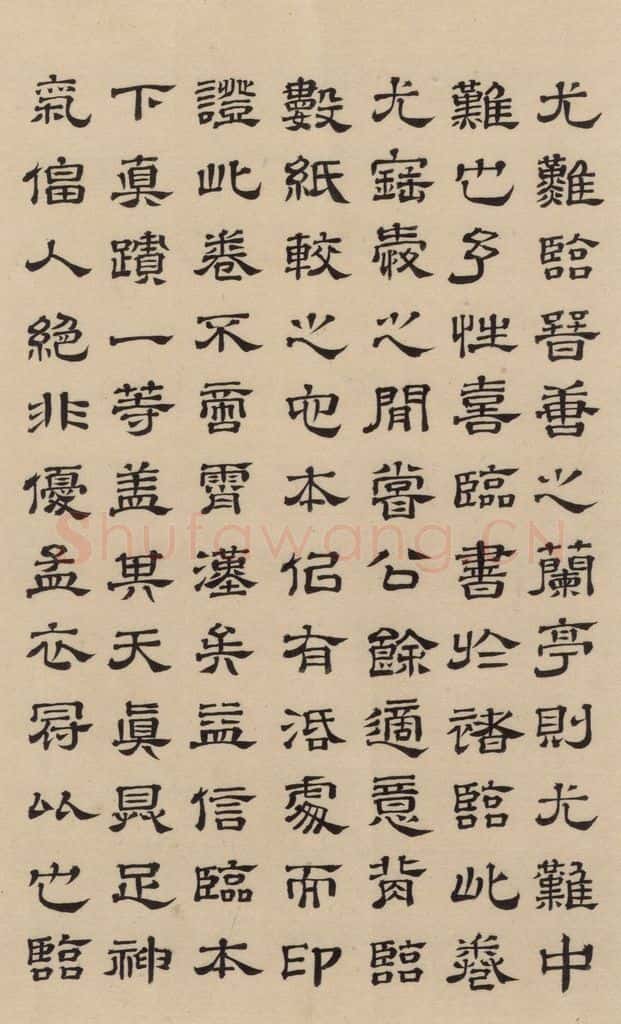 尤難臨善之蘭亭則尤難中
難也予性喜臨書於諸臨此卷
尤之間嘗公餘適意背臨
數紙較之他本似有活處而印
證此卷不啻霄漢矣益信臨本
下真蹟一等盖其天真具足神
氣偪人絕非優孟衣冠比也臨
Shufawang.CN